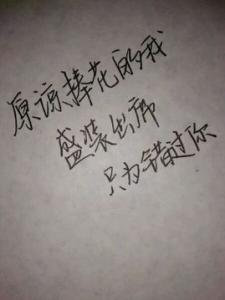 原谅捧花的我
盛装出席
只为错过你